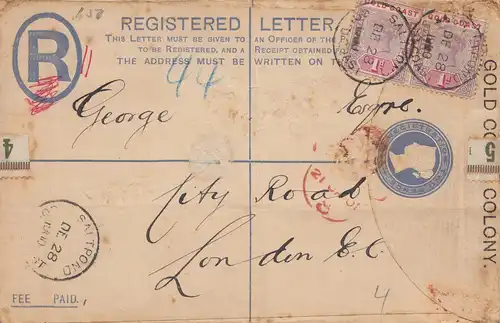 REGISTERED LETTER.
THIS LETTER MUST BE GIVEN TO AN OFFICER OF THE
TO BE REGISTERED, AND A RECEIPT OBTAINED
THE ADDRESS MUST BE WRITTEN ON
R
44
GOLD COAST
GOLD COAST
DE 28
DE 28
George Esqre.
City Road
London E.C.
4
GOLD COAST COLONY.
4
5
REGISTRATION
SALTPOND
DE 28
FEE PAID.